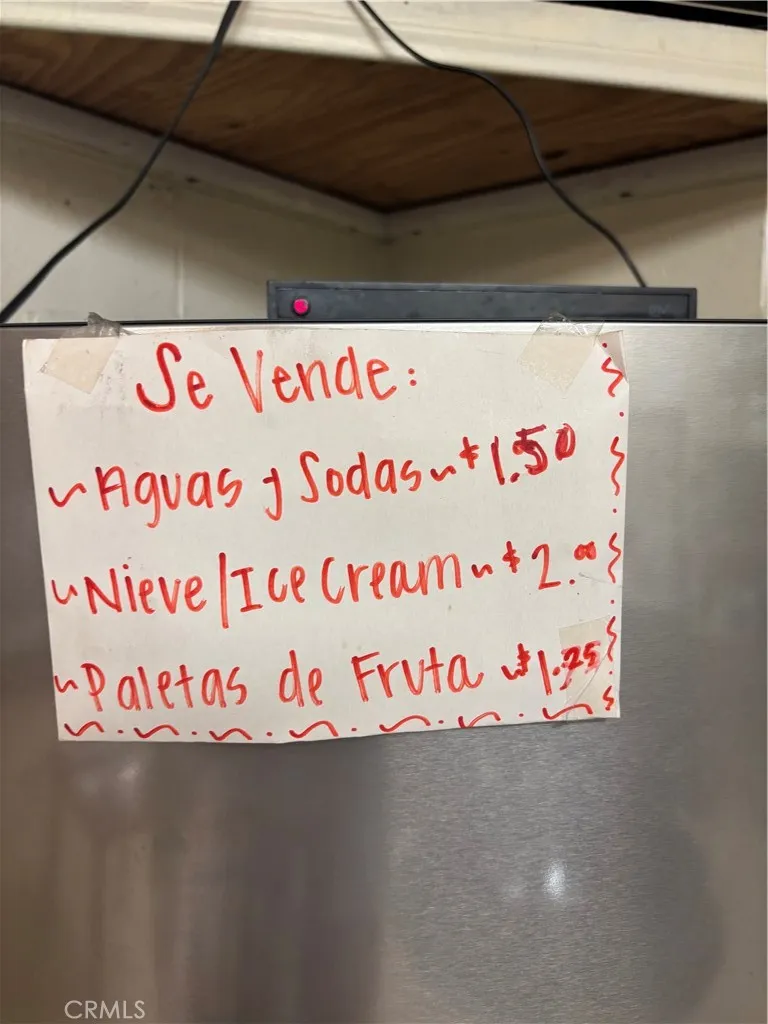 Se Vende:
~ Aguas y Sodas ~ $1.50
~ Nieve/Ice Cream ~ $2.00
~ Paletas de Fruta ~ $1.75
CRMLS